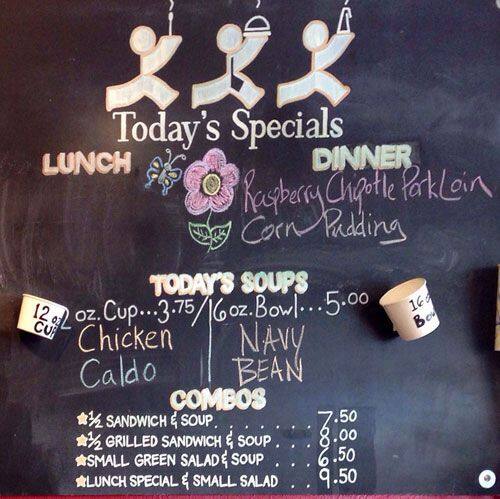 Today's Specials
LUNCH
DINNER
Raspberry Chipotle Pork Loin
Corn Pudding
TODAY'S SOUPS
12 oz. CUP
oz. Cup...3.75/16 oz. Bowl...5.00
16 oz. Bowl
Chicken Caldo
NAVY BEAN
COMBOS
½ SANDWICH & SOUP........7.50
½ GRILLED SANDWICH & SOUP...8.00
SMALL GREEN SALAD & SOUP...6.50
LUNCH SPECIAL & SMALL SALAD...9.50